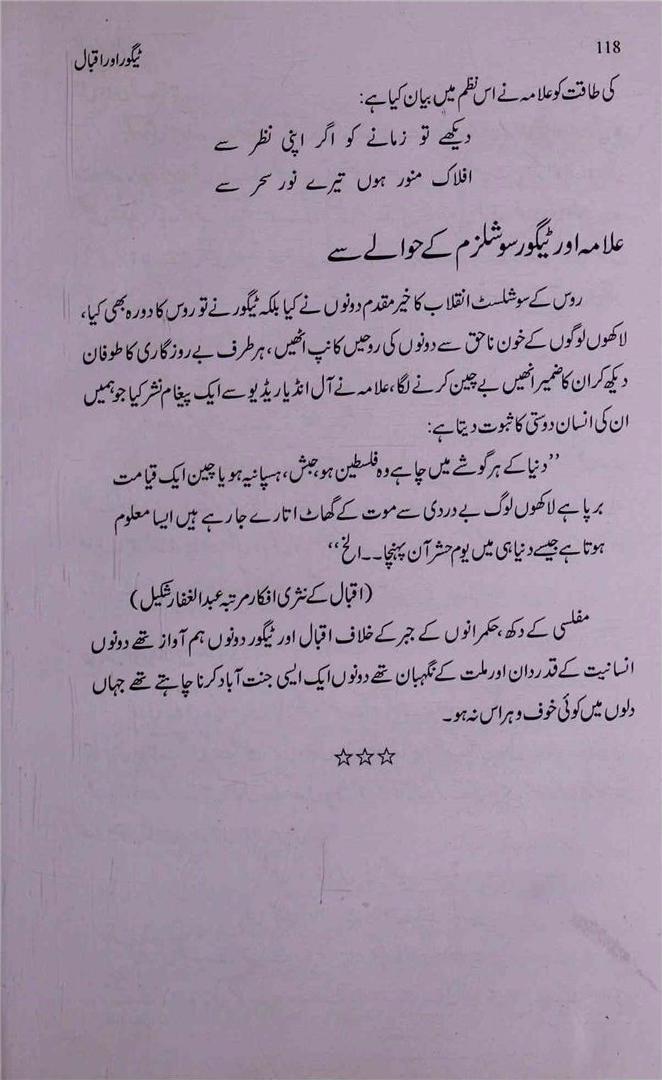 118
ٹیگور اور اقبال
کی طاقت کو علامہ نے اس نظم میں بیان کیا ہے:
دیکھے تو زمانے کو اگر اپنی نظر سے
افلاک منور ہوں تیرے نور سحر سے
علامہ اور ٹیگور سوشلزم کے حوالے سے
روس کے سوشلسٹ انقلاب کا خیر مقدم دونوں نے کیا بلکہ ٹیگور نے تو روس کا دورہ بھی کیا،
لاکھوں لوگوں کے خون ناحق سے دونوں کی روحیں کانپ اٹھیں، ہر طرف بے روزگاری کا طوفان
دیکھ کر ان کا ضمیر انھیں بے چین کرنے لگا، علامہ نے آل انڈیا ریڈیو سے ایک پیغام نشر کیا جو ہمیں
ان کی انسان دوستی کا ثبوت دیتا ہے:
”دنیا کے ہر گوشے میں چاہے وہ فلسطین ہو، حبش، ہسپانیہ ہو یا چین ایک قیامت
برپا ہے لاکھوں لوگ بے دردی سے موت کے گھاٹ اتارے جا رہے ہیں ایسا معلوم
ہوتا ہے جیسے دنیا ہی میں یوم حشر آن پہنچا۔۔الخ“
(اقبال کے نثری افکار مرتبہ عبدالغفار شکیل)
مفلسی کے دکھ، حکمرانوں کے جبر کے خلاف اقبال اور ٹیگور دونوں ہم آواز تھے دونوں
انسانیت کے قدردان اور ملت کے نگہبان تھے دونوں ایک ایسی جنت آباد کرنا چاہتے تھے جہاں
دلوں میں کوئی خوف و ہراس نہ ہو۔
☆☆☆